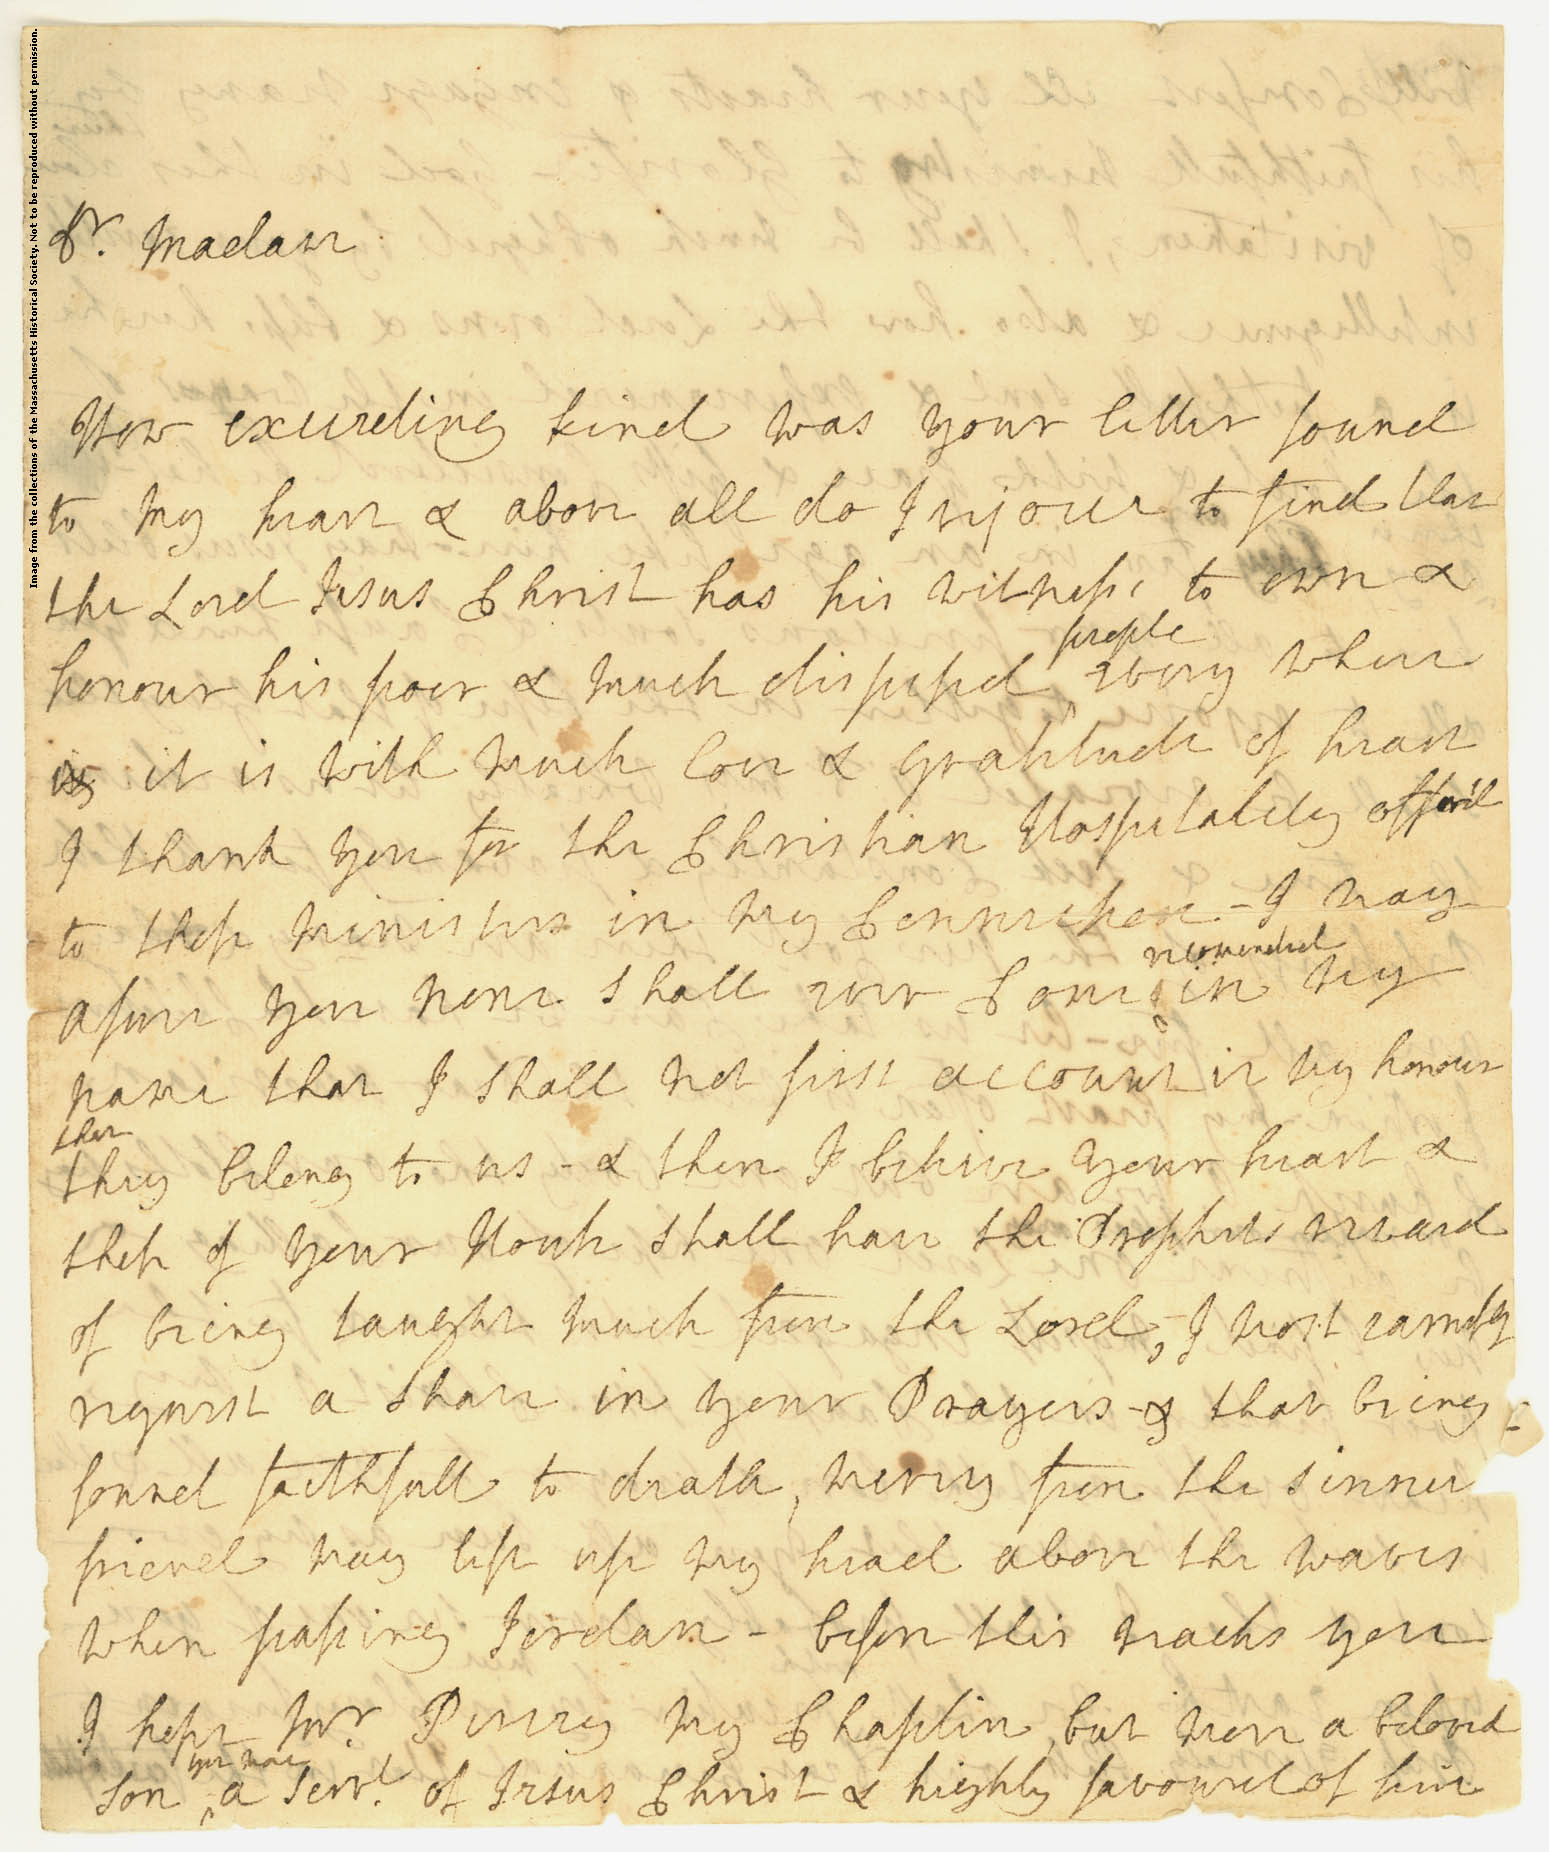 Image from the collections of the Massachusetts Historical Society. Not to be reproduced without permission.
Dr. Madam
How exceeding kind was your letter found
to my heart & above all do I rejoice to find that
the Lord Jesus Christ has his witness to own &
honour his poor & much dispised people every where
it is with much love & gratitude of heart
I thank you for the Christian Hospitality
to these ministers in my - I may
assure you none shall ever Come recomended in my
name that I shall not first account it my honour
that
they belong to us - & then I believe your heart &
those of your House shall have the Prophets reward
of being taught much from the Lord, I most earnestly
request a Share in your Prayers - & that being
found faithfull to death, mercy from the sinners
friend may lift up my head above the waves
when passing Jordan - before this reachs you
I hope Mr Piercy my Chaplin but now a beloved
son you have a Servt. of Jesus Christ & highly favoured of him